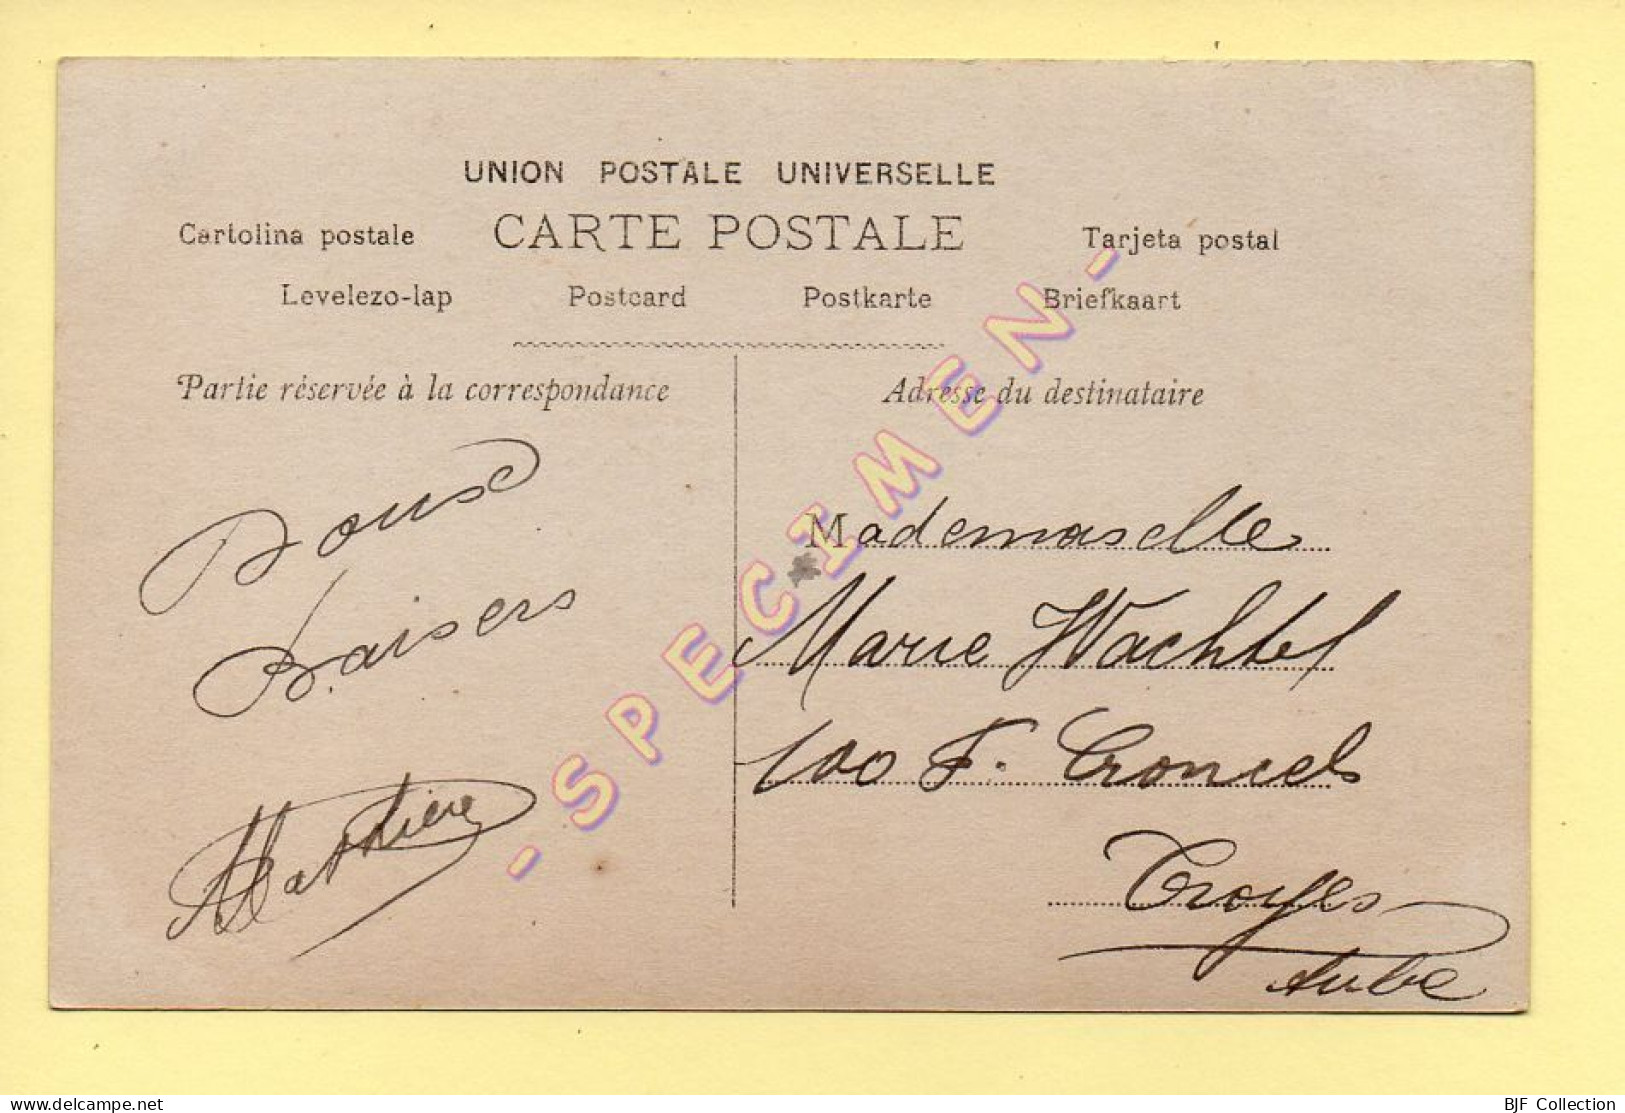 UNION POSTALE UNIVERSELLE
Cartolina postale CARTE POSTALE Tarjeta postal
Levelezo-lap Postcard Postkarte Briefkaart
Partie réservée à la correspondance
Doux
Baisers
Mathière
Adresse du destinataire
Mademoiselle
Marie Wachtel
100 F. Croncels
Troyes
Aube
- SPECIMEN -
www.delcampe.net
BJF Collection